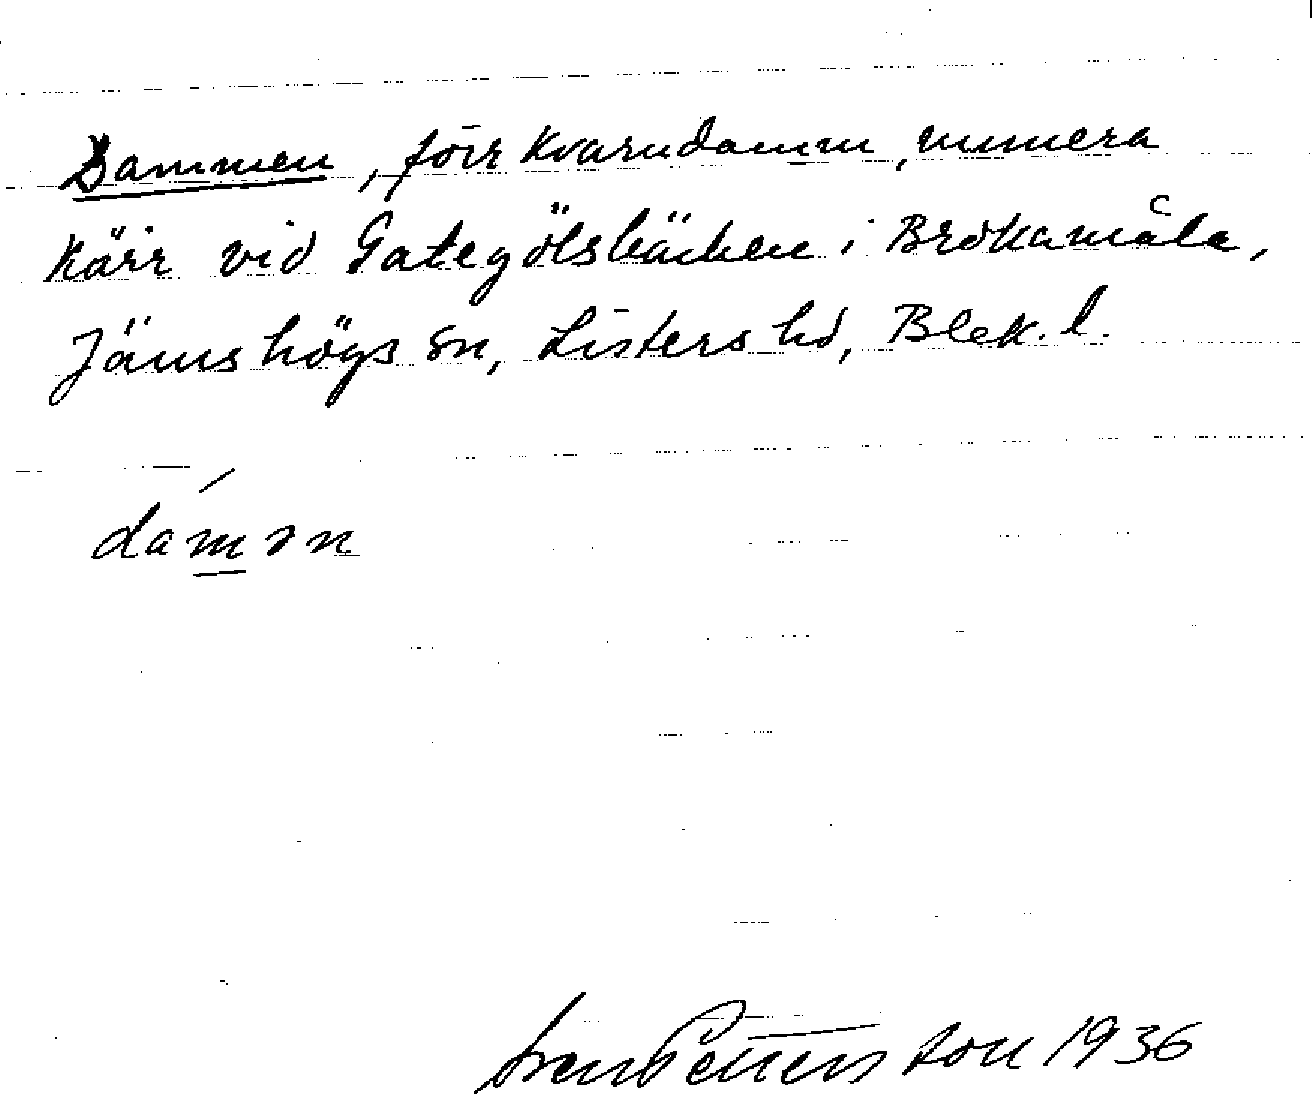 Dammen, förr kvarndamm, numera
kärr vid Gategölsbäcken i Brokamåla,
Jämshögs sn, Listers hd, Blek. l.
damən
Sven Pettersson 1936